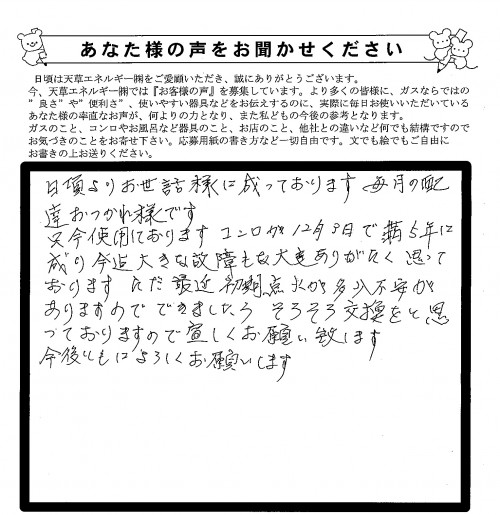 あなた様の声をお聞かせください
日頃は天草エネルギー㈱をご愛顧いただき、誠にありがとうございます。
今、天草エネルギー㈱では『お客様の声』を募集しています。より多くの皆様に、ガスならではの
"良さ"や"便利さ"、使いやすい器具などをお伝えするのに、実際に毎日お使いいただいている
あなた様の率直なお声が、何よりの力となり、また私どもの今後の参考となります。
ガスのこと、コンロやお風呂など器具のこと、お店のこと、他社との違いなど何でも結構ですので
お気づきのことをお寄せ下さい。応募用紙の書き方など一切自由です。文でも絵でもご自由に
お書きの上お送りください。
日頃よりお世話様に成っております 毎月の配
達おつかれ様です
又今使用しております コンロが12月8日で満5年に
成り今迄大きな故障もな 大変ありがたく 思って
おります ただ最近 初期点火が多少不安が
ありますので できましたら そろそろ交換をと思
っておりますので宜しくお願い致します
今後ともによろしくお願いします